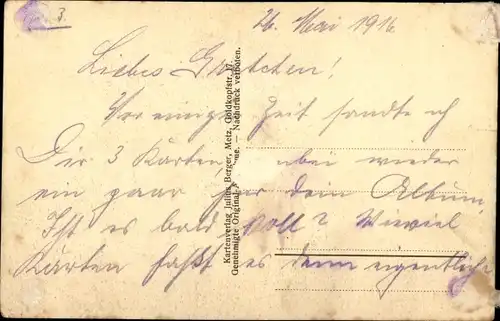 3.
26. Mai 1916
Liebes Gretchen!
Vor einiger Zeit sandte ich
Dir 3 Karten, anbei wieder
ein paar für dein Album.
Ist es bald voll? Wieviel
Karten faßt es denn eigentlich
Kartenverlag Julius Berger, Metz, Goldkopfstr. 17.
Genehmigte Original-Aufnahme. — Nachdruck verboten.